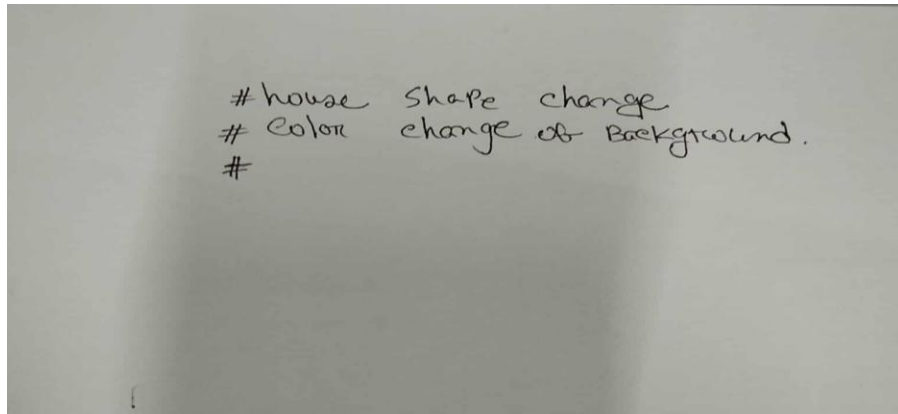 # house shape change
# Color change of Background.
#